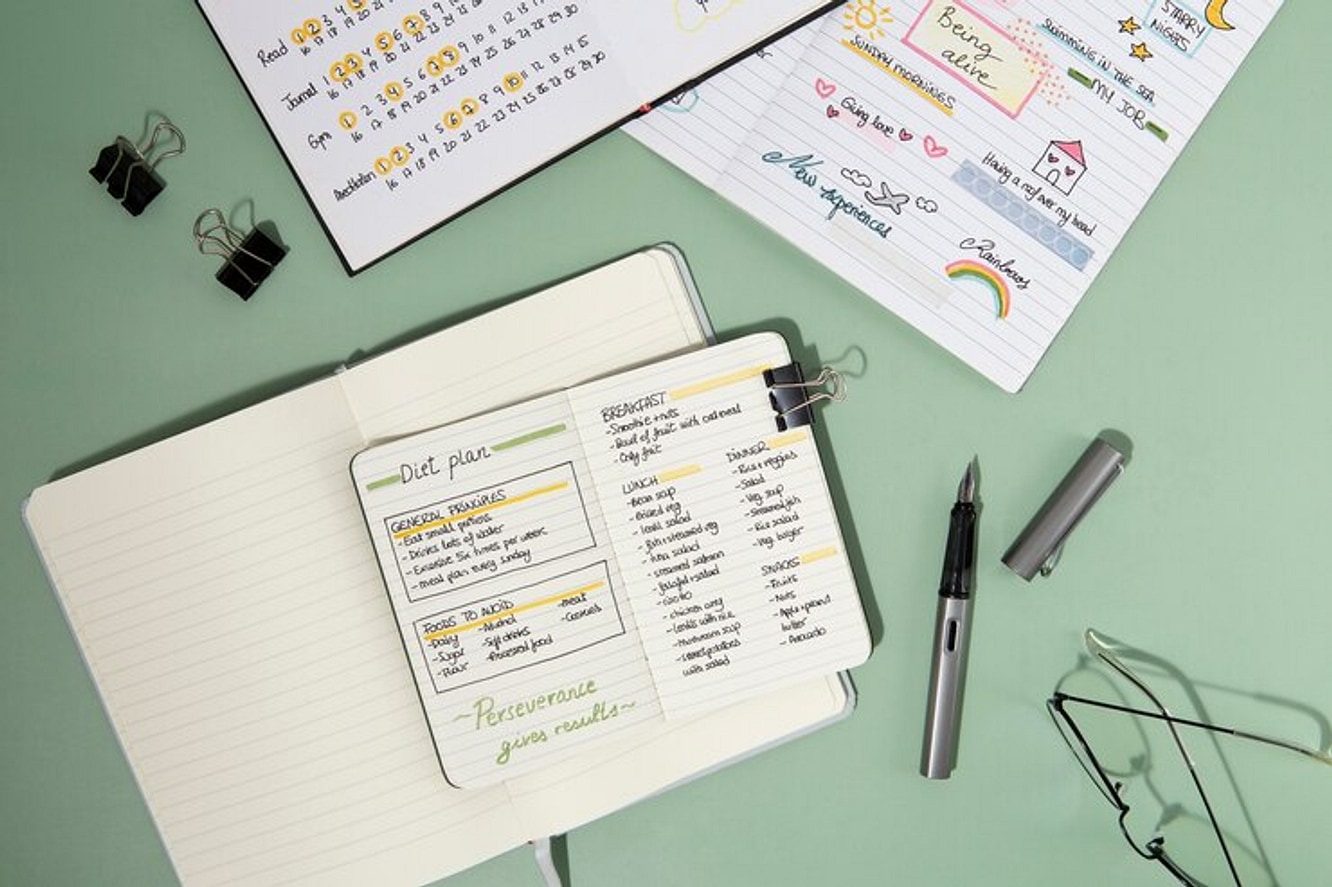 Read 1 2 3 4 5
16 17 18 19 20 21
Journal 1 2 3 4 5 6 7 8 9 10 11 12 13
16 17 18 19 20 21 22 23 24 25 26 27 28 29 30
Gym 1 2 3 4 5 6 7 8 9 10 11 12 13 14 15
16 17 18 19 20 21 22 23 24 25 26 27 28 29 30
Meditation 1 2 3 4 5 6 7 8 9 10 11 12 13 14 15
16 17 18 19 20 21 22 23 24 25 26 27 28 29 30
Being
alive
SUNDAY MORNINGS
Giving love
New experiences
STARRY
NIGHTS
SWIMMING IN THE SEA
MY JOB
Having a roof over my head
Rainbows
Diet plan
GENERAL PRINCIPLES
- Eat small portions
- Drinks lots of water
- Exercise six times per week
- meal plan every sunday
FOODS TO AVOID
- Dairy
- Sugar
- Flour
- Alcohol
- Soft drinks
- Processed food
- Meat
- Custards
~Perseverance
gives results~
BREAKFAST
- Smoothie + nuts
- Bowl of fruit with oatmeal
- Only fruit
LUNCH
- Bean soup
- Braised veg
- lentil salad
- fish + steamed veg
- tuna salad
- steamed salmon
- falafel + salad
- risotto
- chicken curry
- lentils with rice
- mushroom soup
- sweet potatoes
with salad
DINNER
- Rice + veggies
- Salad
- Veg soup
- Steamed fish
- Rice salad
- Veg burger
SNACKS
- Fruits
- Nuts
- Apple + peanut
butter
- Avocado